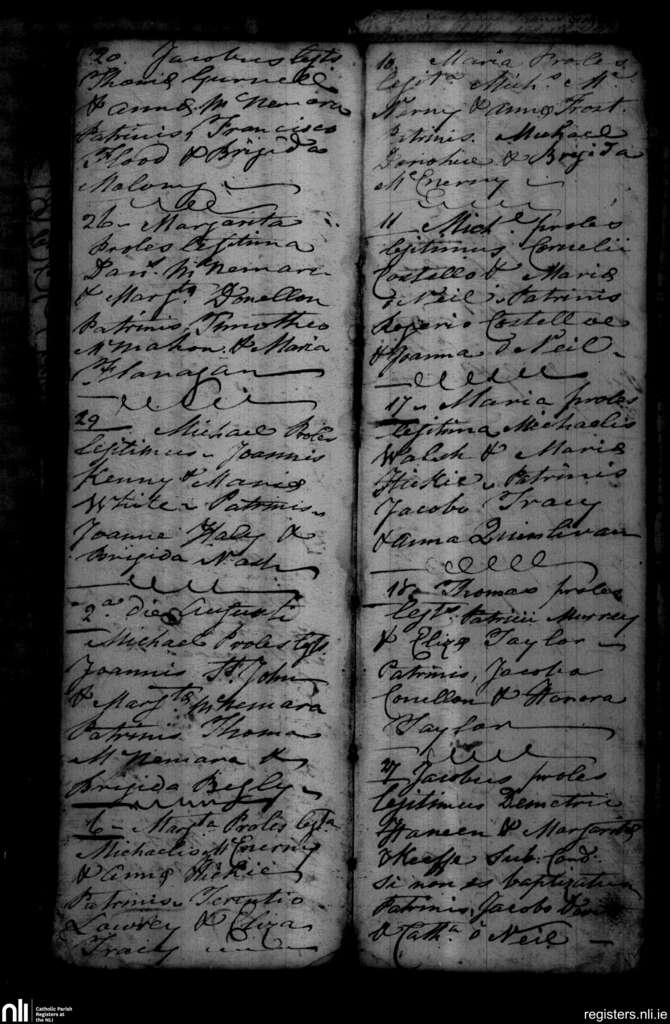 20. Jacobus legts
Thomæ Gurnell
& Annæ McNemara
Patrinis, Francisco
Flood & Brigida
Malony
26 - Margarita
Proles legitima
Danl. McNemara
& Margta Donellon
Patrinis, Timotheo
McMahon & Maria
Flanagan
29 Michael Proles
legitimus - Joannis
Kenny & Mariæ
White - Patrinis
Joanne Haly &
Brigida Nash
2a die Augusti
Michael Proles legts
Joannis St. John
& Margta McNemara
Patrinis Thoma
McNemara &
Brigida Begly
6 - Margta Proles legta
Michaelis McEnerny
& Annæ Hickie
Patrinis Terentio
Lawrey & Eliza
Tracy
10 Maria Proles
legitma Michs Mc
Nerny & Annæ Frost.
Patrinis. Michaele
Donohue & Brigida
McEnerny
11 Michl proles
legitimus Cornelii
Costello & Mariæ
o'Neil. Patrinis
Rogerio Costelloe
& Joanna o'Neil
17 - Maria proles
legitima Michaelis
Walsh & Mariæ
Hickie, Patrinis
Jacobo Tracy
& Anna Quinlivan
18 - Thomas proles
legts Patricii Murrey
& Elizæ Taylor
Patrinis, Jacobo
Conellon & Honora
Taylor
27 Jacobus proles
legitimus Demetrii
Haneen & Margaritæ
Keeffe Sub. Cond.
si non es baptizatus
Patrinis, Jacobo
& Catha ò Neil
nli
Catholic Parish
Registers at
the NLI
registers.nli.ie